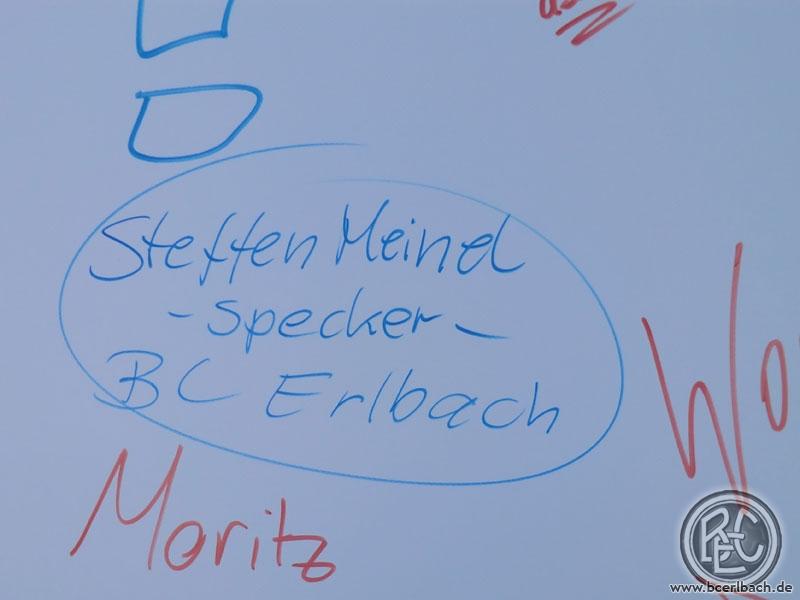 Steffen Meindl
- Specker -
BC Erlbach
Moritz
BCE
www.bcerlbach.de